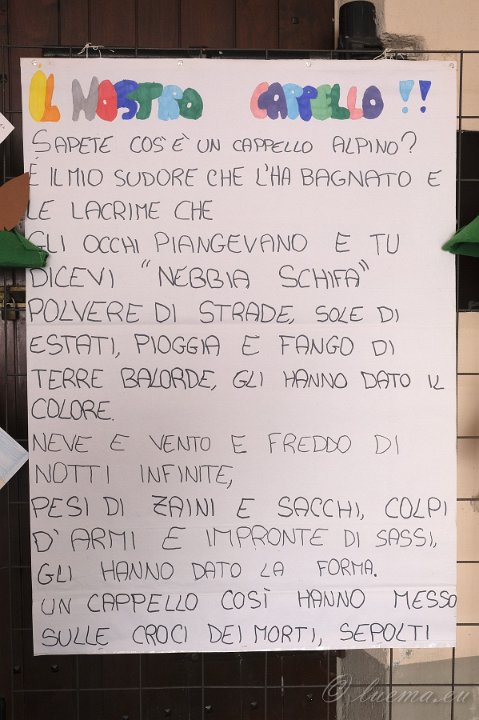 IL NOSTRO CAPPELLO!!
SAPETE COS'È UN CAPPELLO ALPINO?
È IL MIO SUDORE CHE L'HA BAGNATO E
LE LACRIME CHE
GLI OCCHI PIANGEVANO E TU
DICEVI "NEBBIA SCHIFA"
POLVERE DI STRADE, SOLE DI
ESTATI, PIOGGIA E FANGO DI
TERRE BALORDE, GLI HANNO DATO IL
COLORE.
NEVE E VENTO E FREDDO DI
NOTTI INFINITE,
PESI DI ZAINI E SACCHI, COLPI
D'ARMI E IMPRONTE DI SASSI,
GLI HANNO DATO LA FORMA.
UN CAPPELLO COSÌ HANNO MESSO
SULLE CROCI DEI MORTI, SEPOLTI
© luema.eu